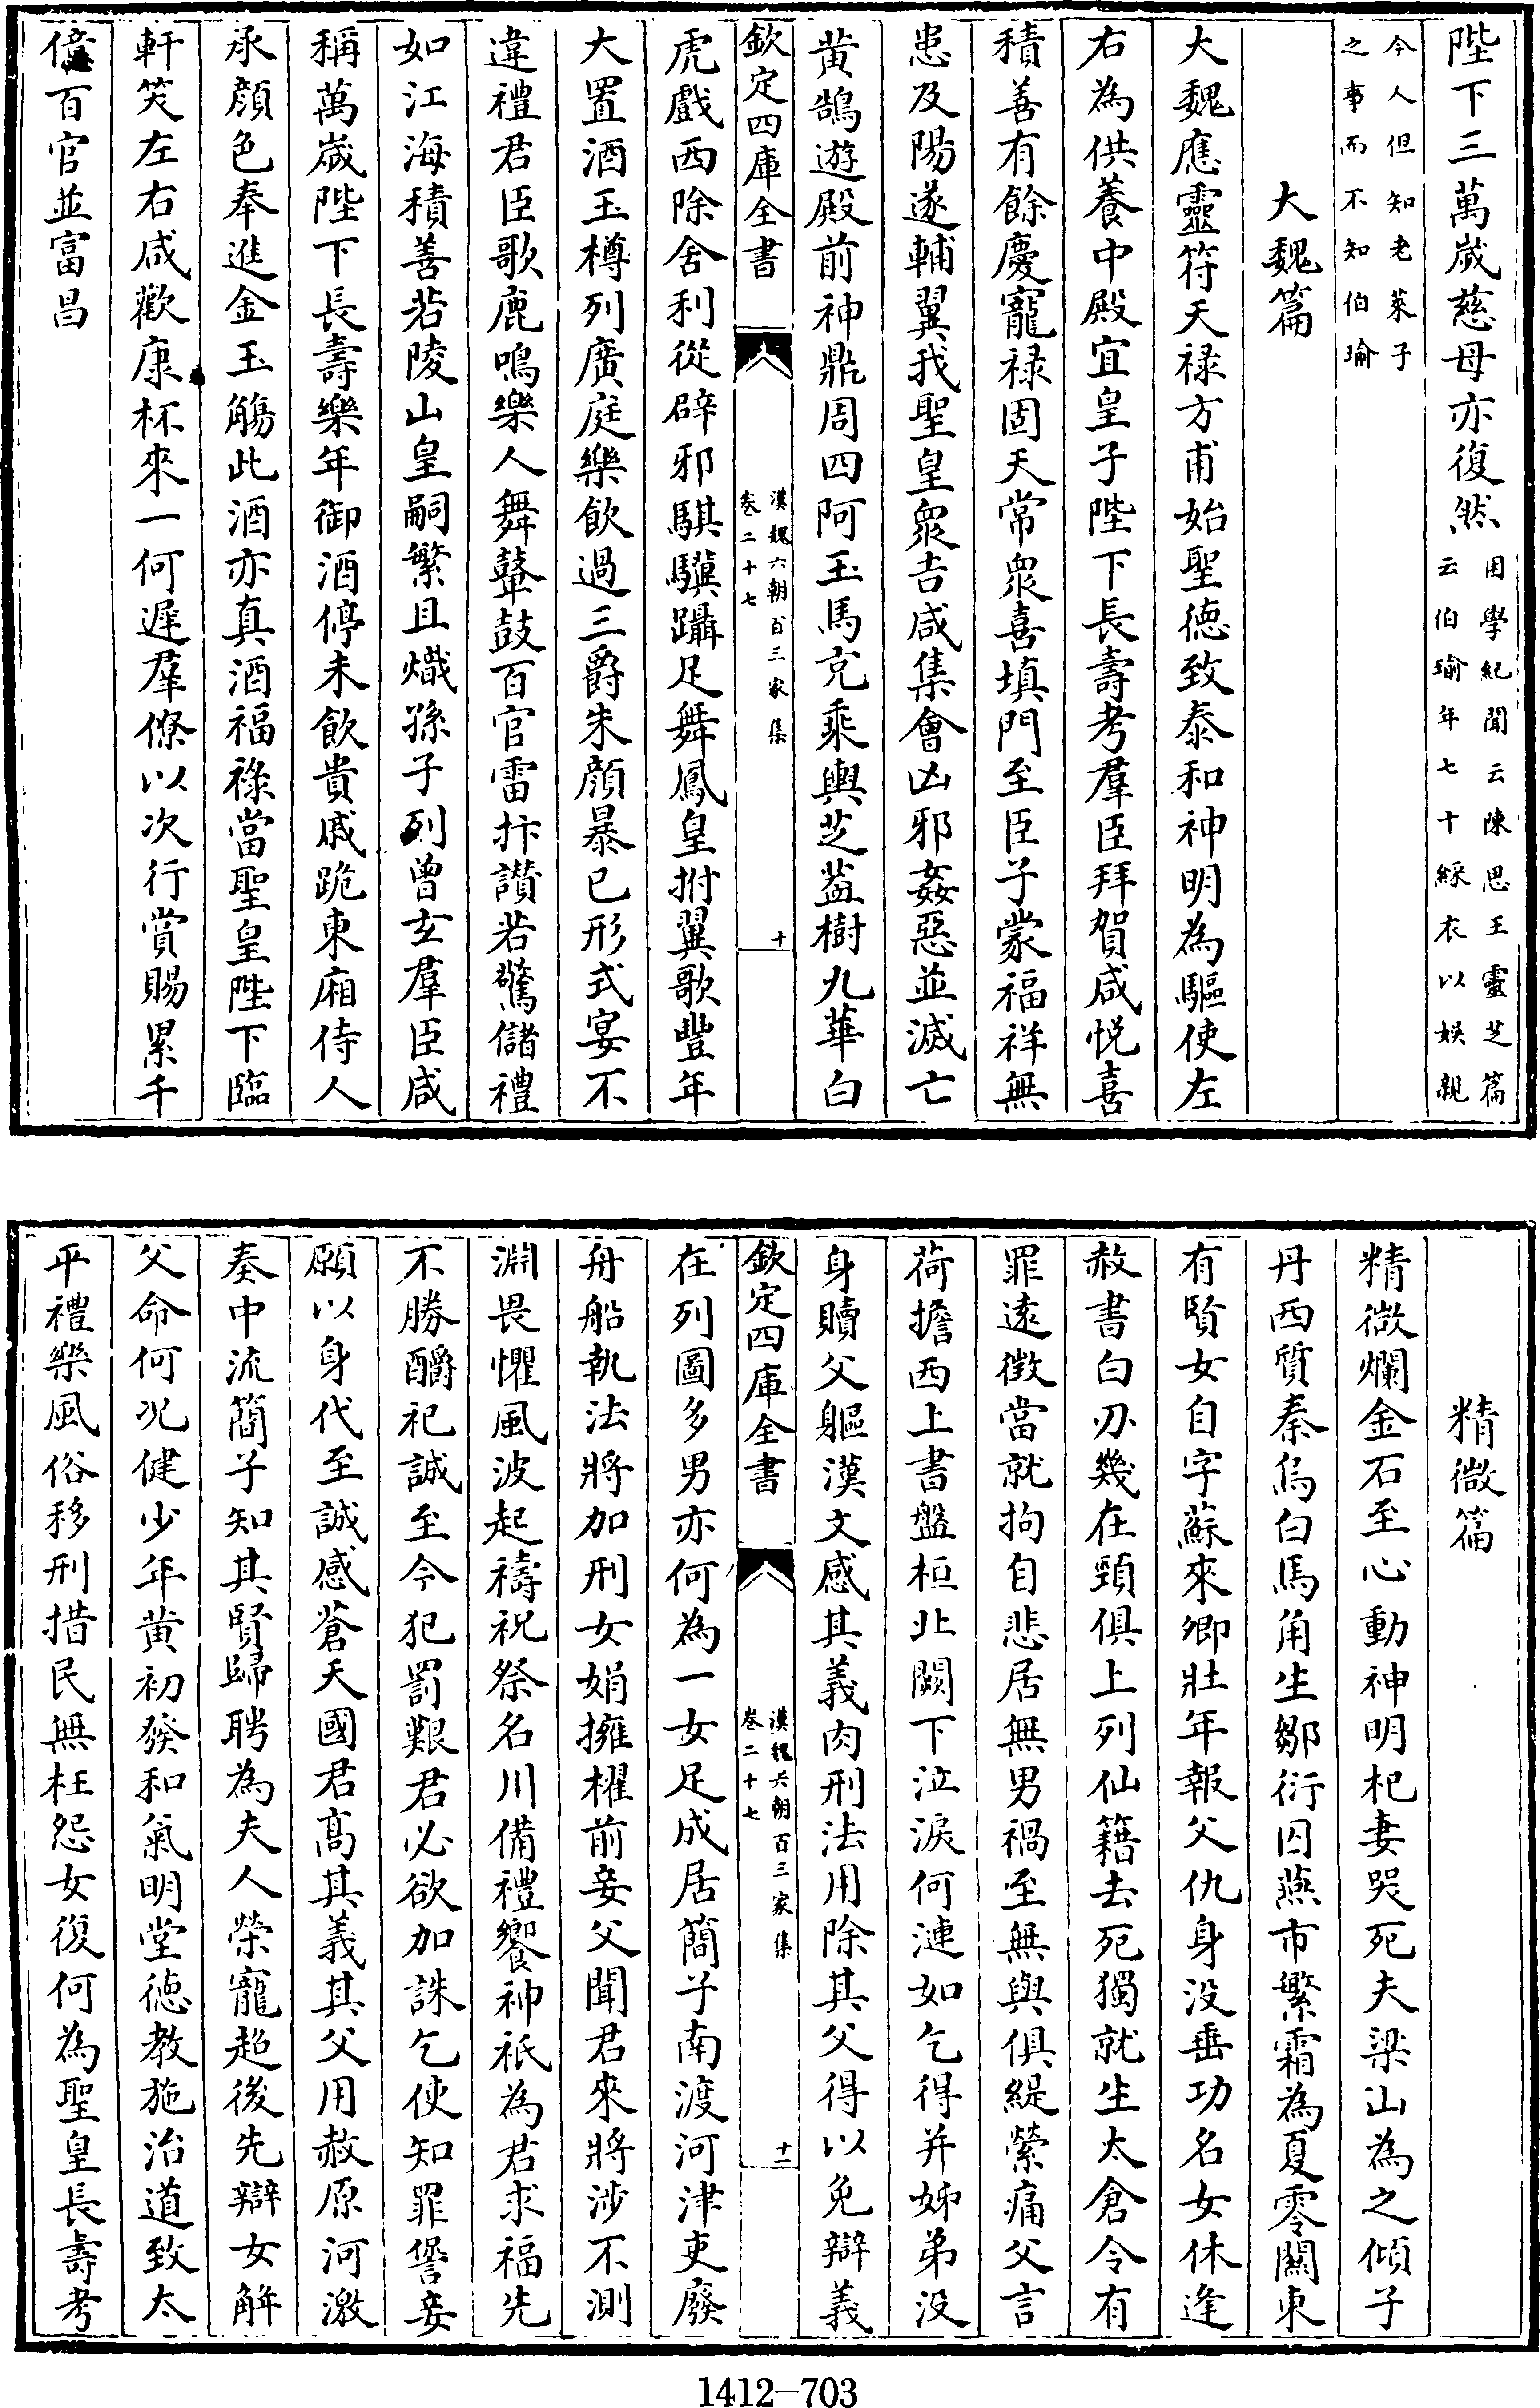 陛下三萬歲慈母亦復然困學紀聞云陳思王靈芝篇云伯瑜年七十綵衣以娱親
今人但知老萊子之事而不知伯瑜
大魏篇
大魏應靈符天禄方甫始聖徳致泰和神明為驅使左
右為供養中殿宜皇子陛下長壽考羣臣拜賀咸悦喜
積善有餘慶寵禄固天常衆喜填門至臣子蒙福祥無
患及陽遂輔翼我聖皇衆吉咸集會凶邪姦惡並滅亡
黄鵠遊殿前神鼎周四阿玉馬充乘輿芝葢樹九華白
欽定四庫全書
漢魏六朝百三家集
卷二十七
十
虎戲西除舍利從辟邪騏驥躡足舞鳳皇拊翼歌豐年
大置酒玉樽列廣庭樂飲過三爵朱顔暴己形式宴不
違禮君臣歌鹿鳴樂人舞鼙鼓百官雷抃讃若驚儲禮
如江海積善若陵山皇嗣繁且熾孫子列曾玄羣臣咸
稱萬歲陛下長壽樂年御酒停未飲貴戚跪東廂侍人
承顔色奉進金玉觴此酒亦真酒福禄當聖皇陛下臨
軒笑左右咸歡康杯來一何遲羣僚以次行賞賜累千
億百官並富昌
精微篇
精微爛金石至心動神明杞妻哭死夫梁山為之傾子
丹西質秦烏白馬角生鄒衍囚燕市繁霜為夏零關東
有賢女自字蘇來卿壯年報父仇身没垂功名女休逢
赦書白刃幾在頸俱上列仙籍去死獨就生太倉令有
罪遠徴當就拘自悲居無男禍至無與俱緹縈痛父言
荷擔西上書盤桓北闕下泣淚何漣如乞得并姊弟没
身贖父軀漢文感其義肉刑法用除其父得以免辯義
欽定四庫全書
漢魏六朝百三家集
卷二十七
十一
在列圖多男亦何為一女足成居簡子南渡河津吏廢
舟船執法將加刑女娟擁櫂前妾父聞君來將涉不測
淵畏懼風波起禱祝祭名川備禮饗神祇為君求福先
不勝釂祀誠至今犯罰艱君必欲加誅乞使知罪諐妾
願以身代至誠感蒼天國君高其義其父用赦原河激
奏中流簡子知其賢歸聘為夫人榮寵超後先辯女解
父命何况健少年黄初發和氣明堂徳教施治道致太
平禮樂風俗移刑措民無枉怨女復何為聖皇長壽考
1412—703